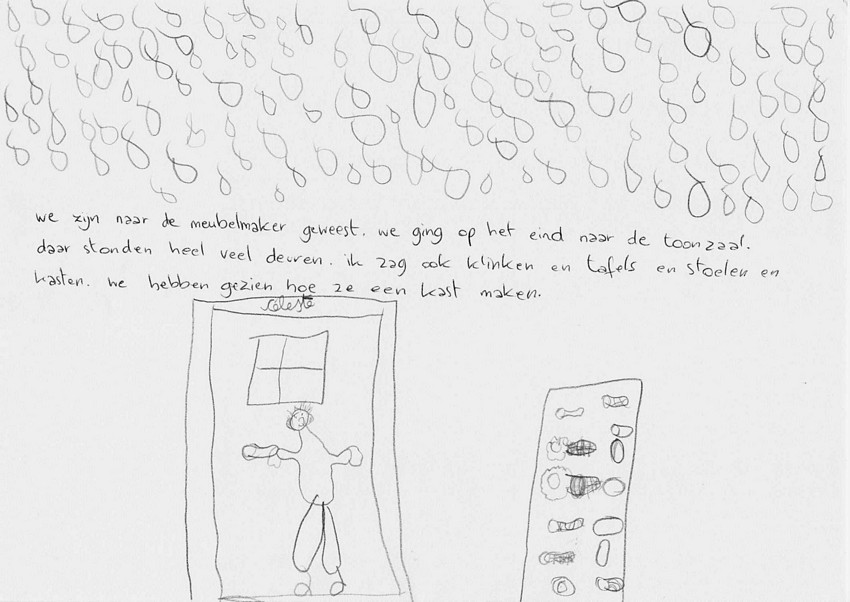 we zijn naar de meubelmaker geweest. we ging op het eind naar de toonzaal.
daar stonden heel veel deuren. ik zag ook klinken en tafels en stoelen en
kasten. we hebben gezien hoe ze een kast maken.
celeste